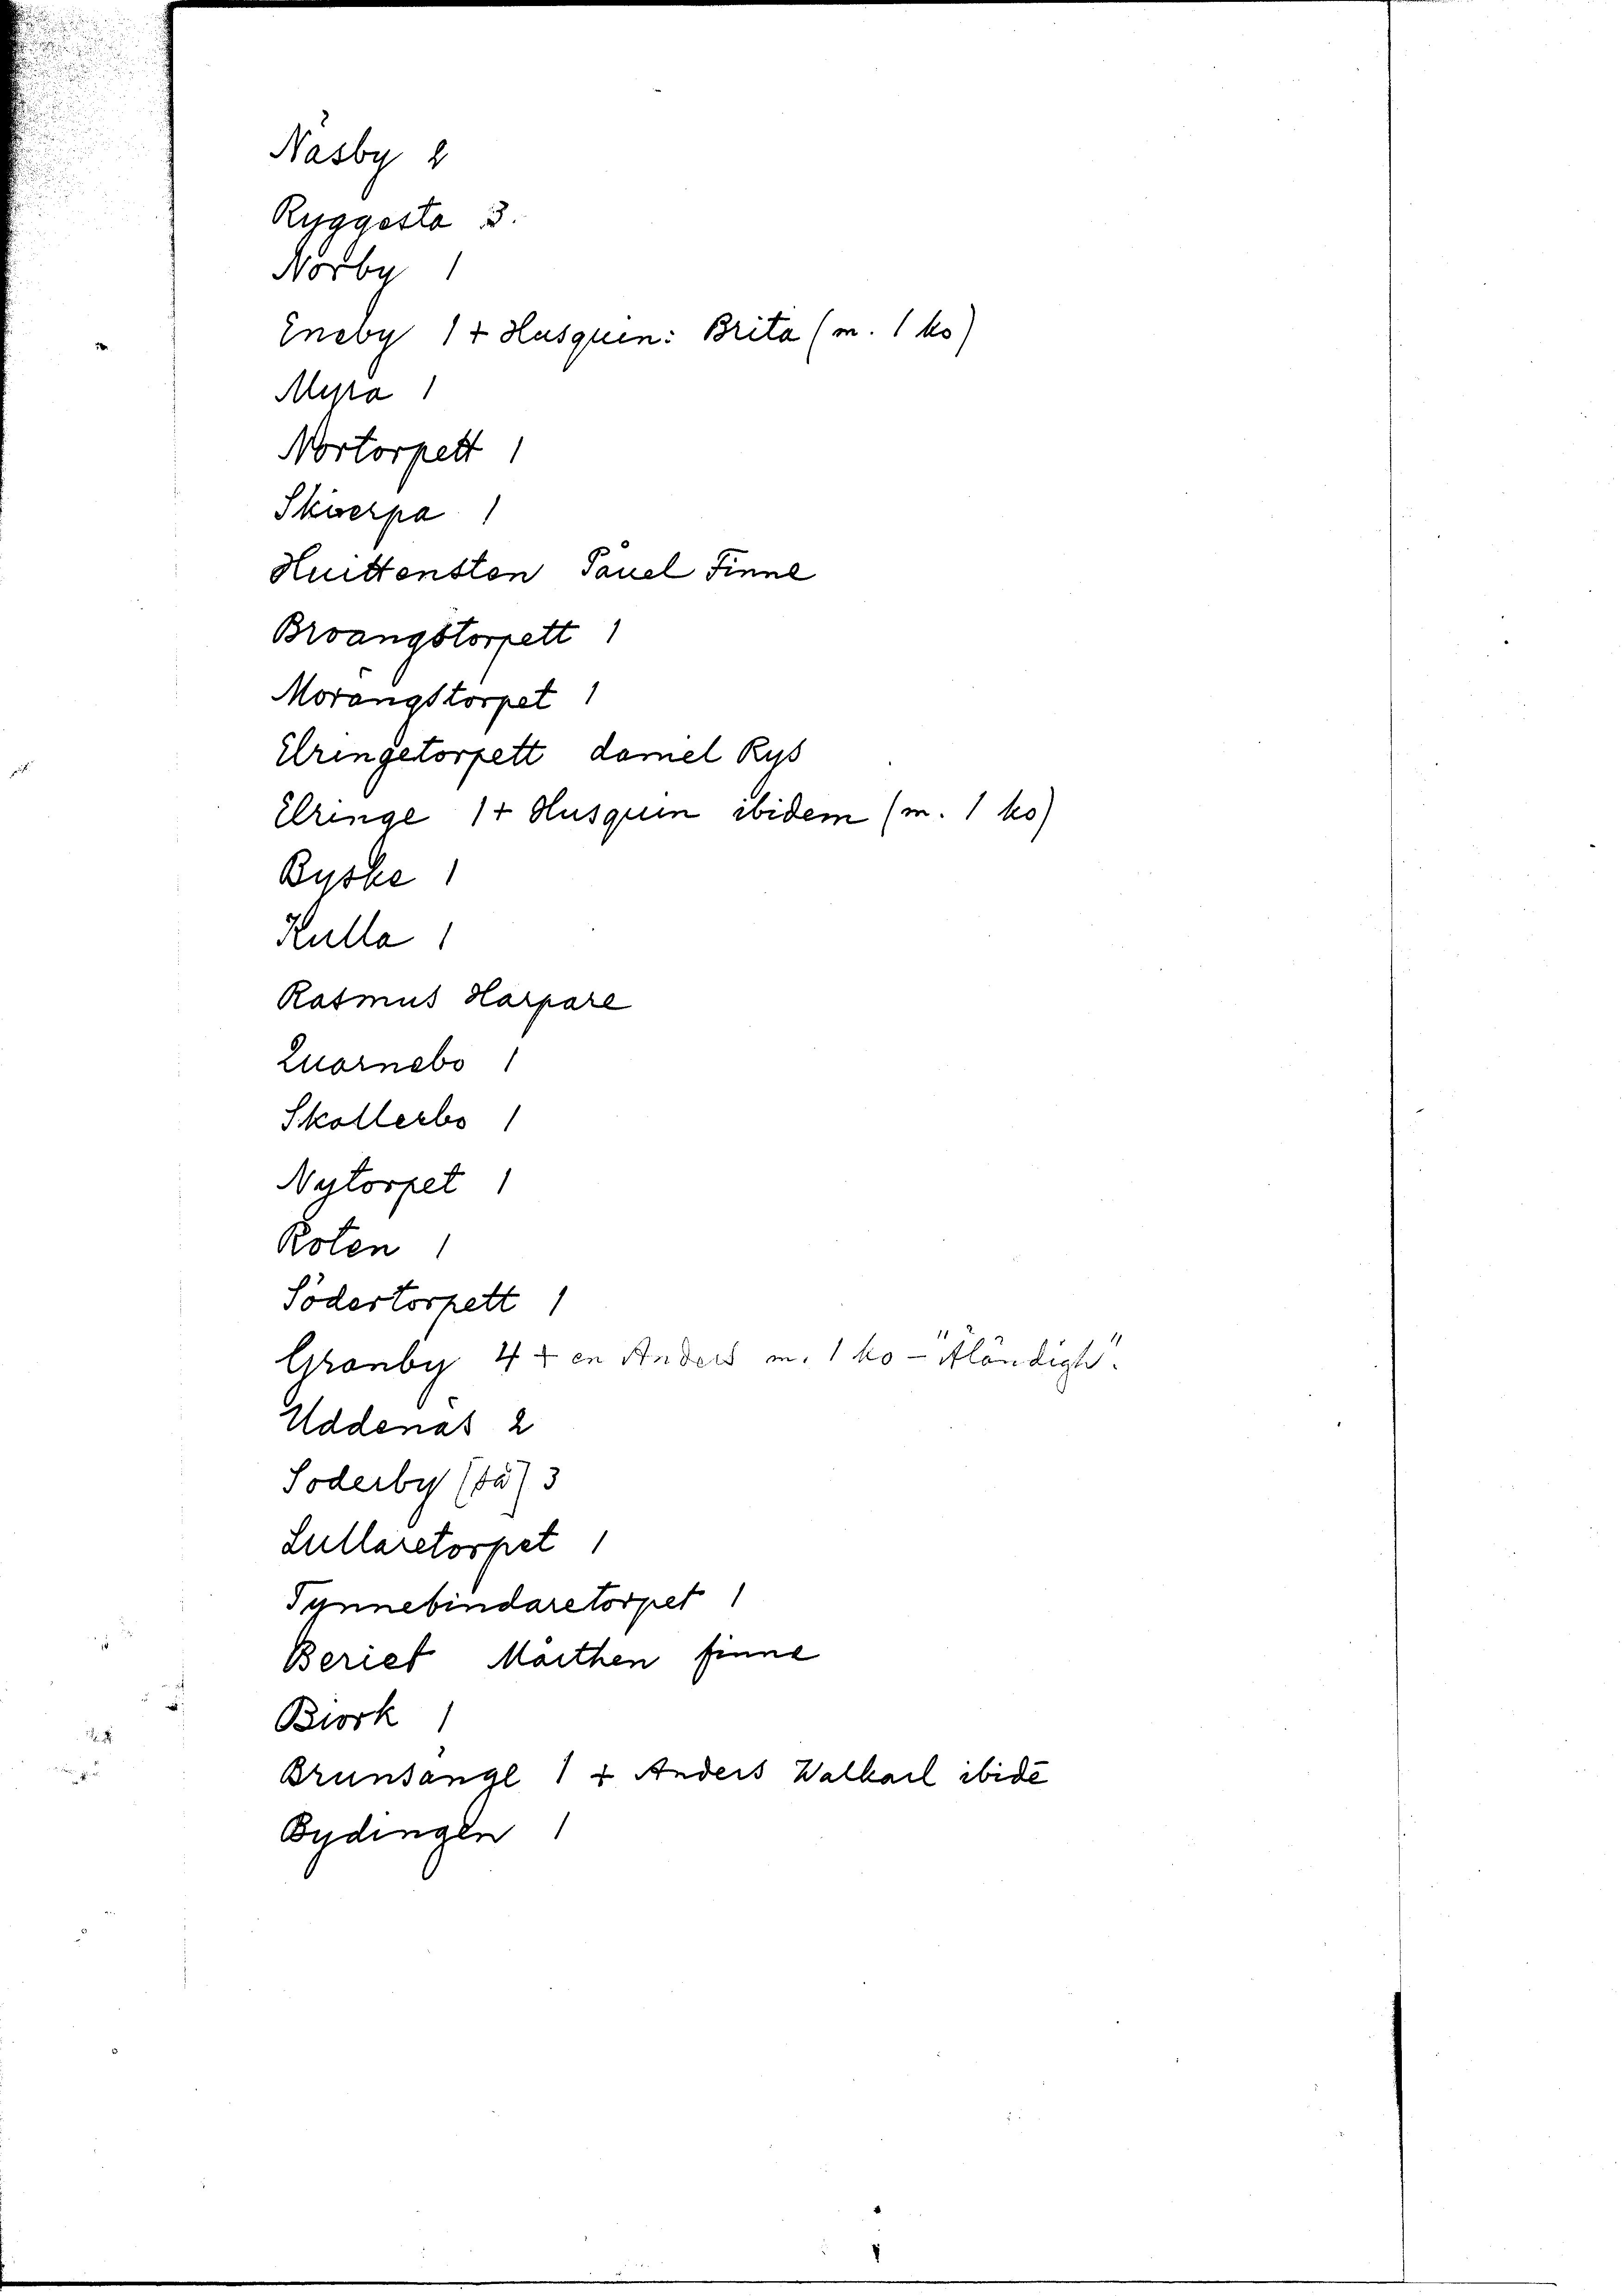 Näsby 2
Ryggesta 3.
Nörby 1
Eneby 1 + Husquin: Brita (m. 1 ko)
Myra 1
Nortorpett 1
Skiverpa 1
Huittensten Påuel Finne
Broangstorpett 1
Morängstorpet 1
Elringetorpett daniel Rys
Elringe 1 + Husquin ibidem (m. 1 ko)
Byske 1
Kulla 1
Rasmus Harpare
Quarnebo 1
Skollerbo 1
Nytorpet 1
Roten 1
Södertorpett 1
Granby 4 + en Anders m. 1 ko - "Åländigh".
Uddenäs 2
Soderby (så) 3
Lullaretorpet 1
Tynnebindaretorpet 1
Beriet Mårthen finne
Biork 1
Brunsänge 1 + Anders Walkarl ibidē
Bydingen 1